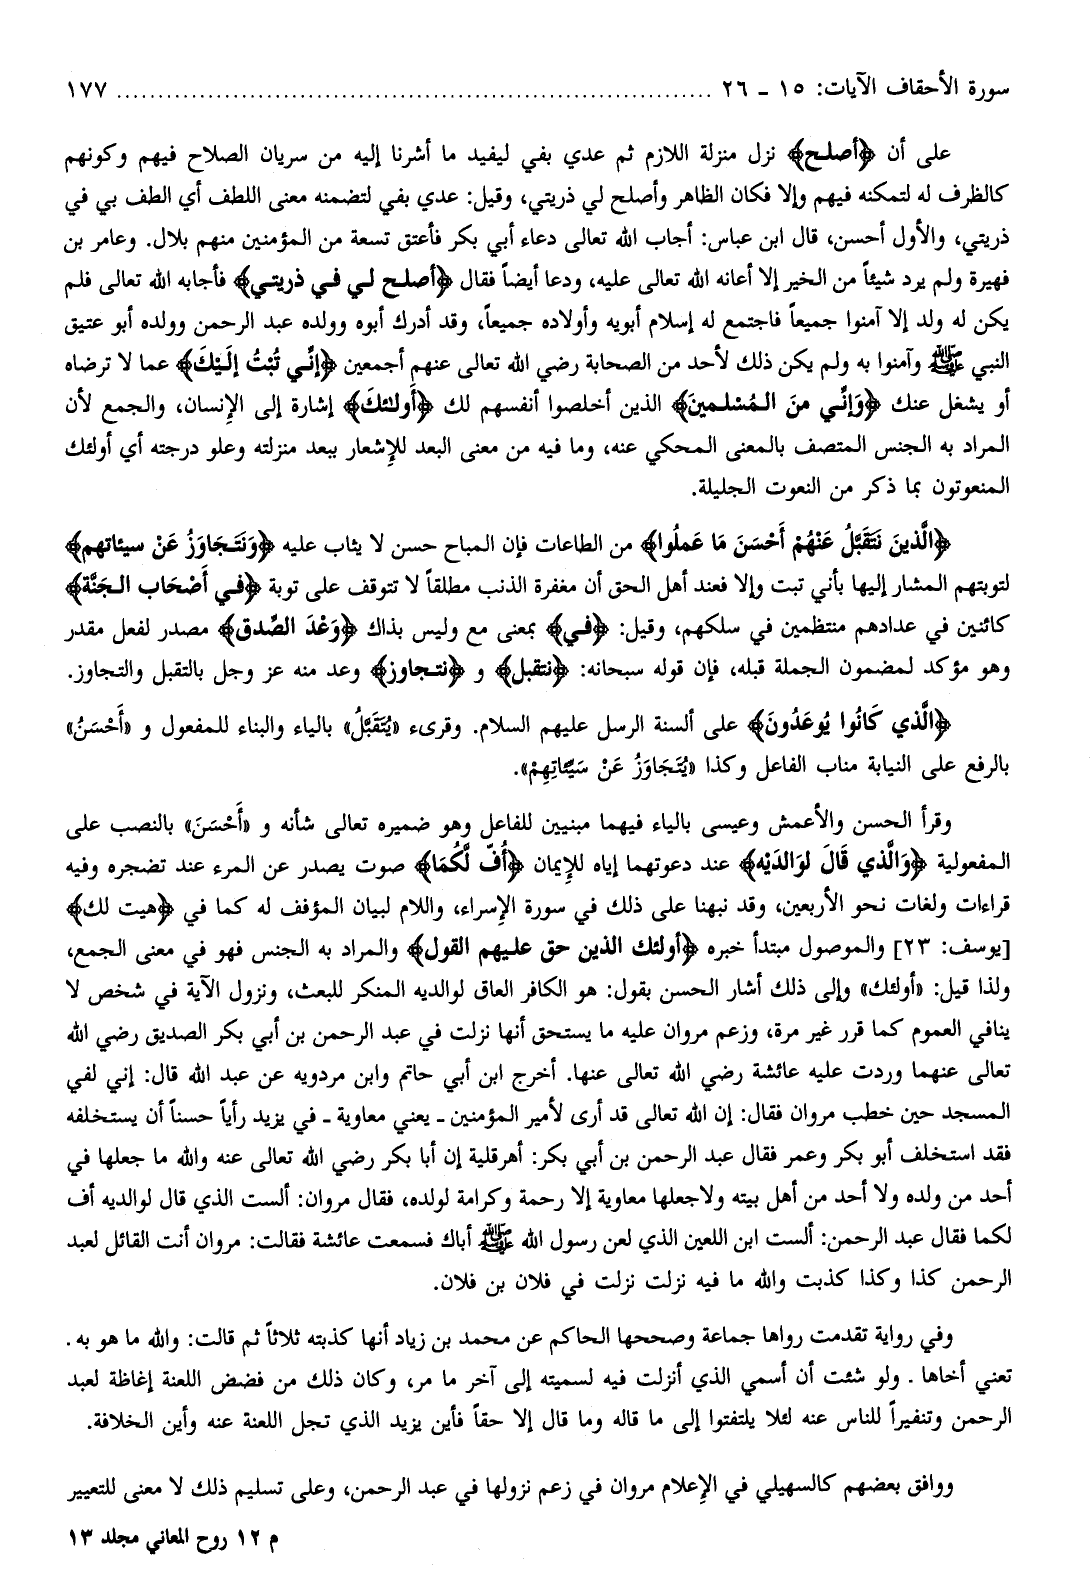 سورة الأحقاف الآيات: ١٥ ـ ٢٦ ........................................................................ ١٧٧
على أن ﴿أصلح﴾ نزل منزلة اللازم ثم عدي بفي ليفيد ما أشرنا إليه من سريان الصلاح فيهم وكونهم
كالظرف له لتمكنه فيهم وإلا فكان الظاهر وأصلح لي ذريتي، وقيل: عدي بفي لتضمنه معنى اللطف أي الطف بي في
ذريتي، والأول أحسن، قال ابن عباس: أجاب الله تعالى دعاء أبي بكر فأعتق تسعة من المؤمنين منهم بلال. وعامر بن
فهيرة ولم يرد شيئاً من الخير إلا أعانه الله تعالى عليه، ودعا أيضاً فقال ﴿أصلح لي في ذريتي﴾ فأجابه الله تعالى فلم
يكن له ولد إلا آمنوا جميعاً فاجتمع له إسلام أبويه وأولاده جميعاً، وقد أدرك أبوه وولده عبد الرحمن وولده أبو عتيق
النبي ﷺ وآمنوا به ولم يكن ذلك لأحد من الصحابة رضي الله تعالى عنهم أجمعين ﴿إنِّي تُبْتُ إلَيْكَ﴾ عما لا ترضاه
أو يشغل عنك ﴿وَإنِّي منَ الـمُسْلـمينَ﴾ الذين أخلصوا أنفسهم لك ﴿أَولئكَ﴾ إشارة إلى الإِنسان، والجمع لأن
المراد به الجنس المتصف بالمعنى المحكي عنه، وما فيه من معنى البعد للإِشعار ببعد منزلته وعلو درجته أي أولئك
المنعوتون بما ذكر من النعوت الجليلة.
﴿الَّذينَ نَتَقَبَّلُ عَنْهُمْ أَحْسَنَ مَا عَملُوا﴾ من الطاعات فإن المباح حسن لا يثاب عليه ﴿وَنَتَـجَاوَزُ عَنْ سيئاتهم﴾
لتوبتهم المشار إليها بأني تبت وإلا فعند أهل الحق أن مغفرة الذنب مطلقاً لا تتوقف على توبة ﴿فـي أَصْحَاب الـجَنَّة﴾
كائنين في عدادهم منتظمين في سلكهم، وقيل: ﴿فـي﴾ بمعنى مع وليس بذاك ﴿وَعْدَ الصِّدق﴾ مصدر لفعل مقدر
وهو مؤكد لمضمون الجملة قبله، فإن قوله سبحانه: ﴿نتقبل﴾ و ﴿نتـجاوز﴾ وعد منه عز وجل بالتقبل والتجاوز.
﴿الَّذي كَانُوا يُوعَدُونَ﴾ على ألسنة الرسل عليهم السلام. وقرىء «يُتَقَبَّلُ» بالياء والبناء للمفعول و «أَحْسَنُ»
بالرفع على النيابة مناب الفاعل وكذا «يُتَجَاوَزُ عَنْ سَيِّئَاتِهِمْ».
وقرأ الحسن والأعمش وعيسى بالياء فيهما مبنيين للفاعل وهو ضميره تعالى شأنه و «أَحْسَنَ» بالنصب على
المفعولية ﴿وَالَّذي قَالَ لوَالدَيْه﴾ عند دعوتهما إياه للإِيمان ﴿أُفّ لَّكُمَا﴾ صوت يصدر عن المرء عند تضجره وفيه
قراءات ولغات نحو الأربعين، وقد نبهنا على ذلك في سورة الإِسراء، واللام لبيان المؤفف له كما في ﴿هيت لك﴾
[يوسف: ٢٣] والموصول مبتدأ خبره ﴿أولئك الذين حق عليهم القول﴾ والمراد به الجنس فهو في معنى الجمع،
ولذا قيل: «أولئك» وإلى ذلك أشار الحسن بقول: هو الكافر العاق لوالديه المنكر للبعث، ونزول الآية في شخص لا
ينافي العموم كما قرر غير مرة، وزعم مروان عليه ما يستحق أنها نزلت في عبد الرحمن بن أبي بكر الصديق رضي الله
تعالى عنهما وردت عليه عائشة رضي الله تعالى عنها. أخرج ابن أبي حاتم وابن مردويه عن عبد الله قال: إني لفي
المسجد حين خطب مروان فقال: إن الله تعالى قد أرى لأمير المؤمنين ـ يعني معاوية ـ في يزيد رأياً حسناً أن يستخلفه
فقد استخلف أبو بكر وعمر فقال عبد الرحمن بن أبي بكر: أهرقلية إن أبا بكر رضي الله تعالى عنه والله ما جعلها في
أحد من ولده ولا أحد من أهل بيته ولاجعلها معاوية إلا رحمة وكرامة لولده، فقال مروان: ألست الذي قال لوالديه أف
لكما فقال عبد الرحمن: ألست ابن اللعين الذي لعن رسول الله ﷺ أباك فسمعت عائشة فقالت: مروان أنت القائل لعبد
الرحمن كذا وكذا كذبت والله ما فيه نزلت نزلت في فلان بن فلان.
وفي رواية تقدمت رواها جماعة وصححها الحاكم عن محمد بن زياد أنها كذبته ثلاثاً ثم قالت: والله ما هو به .
تعني أخاها . ولو شئت أن أسمي الذي أنزلت فيه لسميته إلى آخر ما مر، وكان ذلك من فضض اللعنة إغاظة لعبد
الرحمن وتنفيراً للناس عنه لئلا يلتفتوا إلى ما قاله وما قال إلا حقاً فأين يزيد الذي تجل اللعنة عنه وأين الخلافة.
ووافق بعضهم كالسهيلي في الإِعلام مروان في زعم نزولها في عبد الرحمن، وعلى تسليم ذلك لا معنى للتعيير
م ١٢ روح المعاني مجلد ١٣